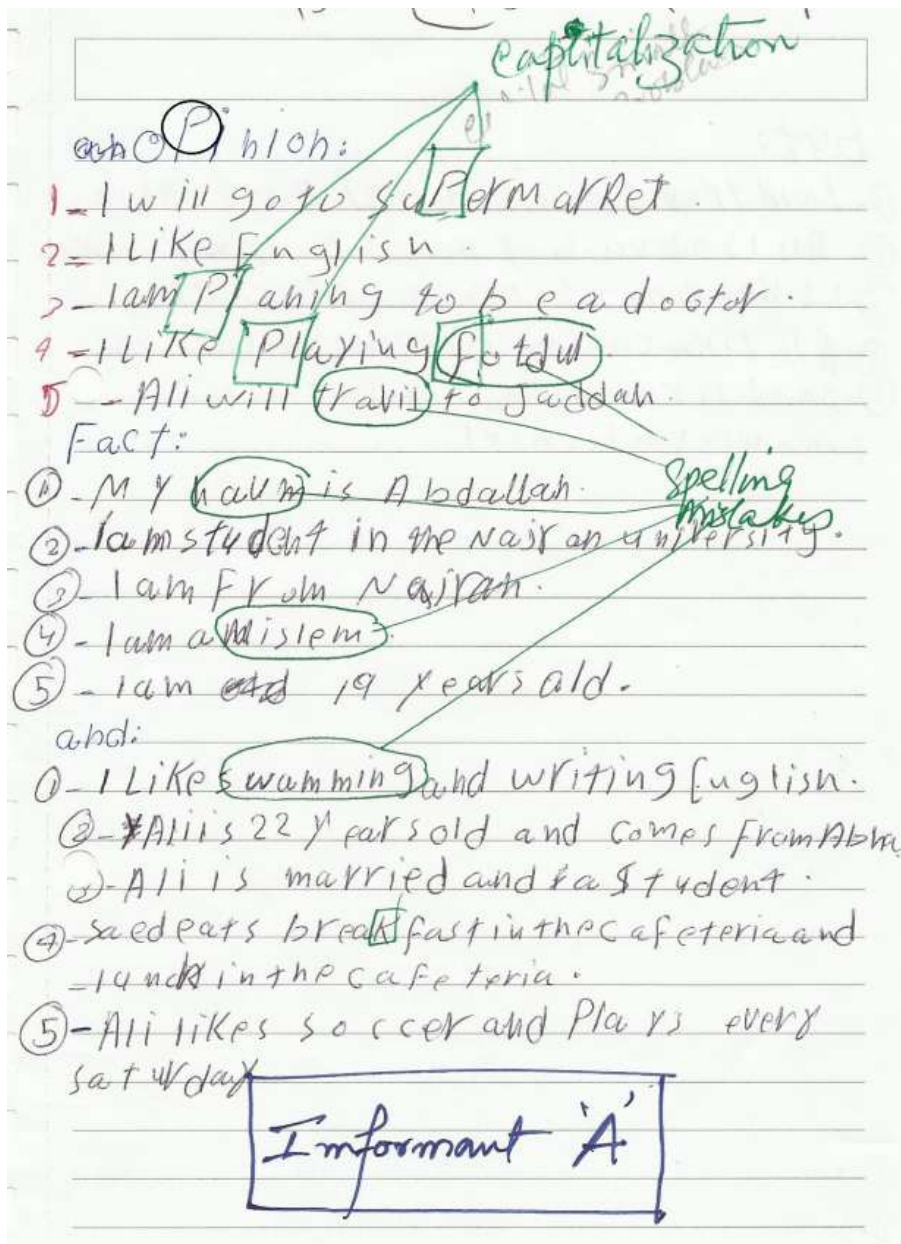 capitalization
oPinion:
1- I will go to suPermarKet.
2- I LiKe English.
3- I am Planing to be a doctor.
4- I LiKe Playing fotdul.
5 - Ali will travil to Jaddah.
Fact:
① - My naum is Abdallah.
Spelling mistakes
② - I am student in the Najran university.
③ - I am From Najran.
④ - I am a Mislem.
⑤ - I am 19 years ald.
and:
① - I Like swamming and writing English.
② - Ali is 22 years old and comes From Abha
③ - Ali is married and a student.
④ - saed eats breaKfast in the cafeteria and
- lunch in the cafeteria.
⑤ - Ali liKes soccer and Plays every
saturday
Imformant 'A'